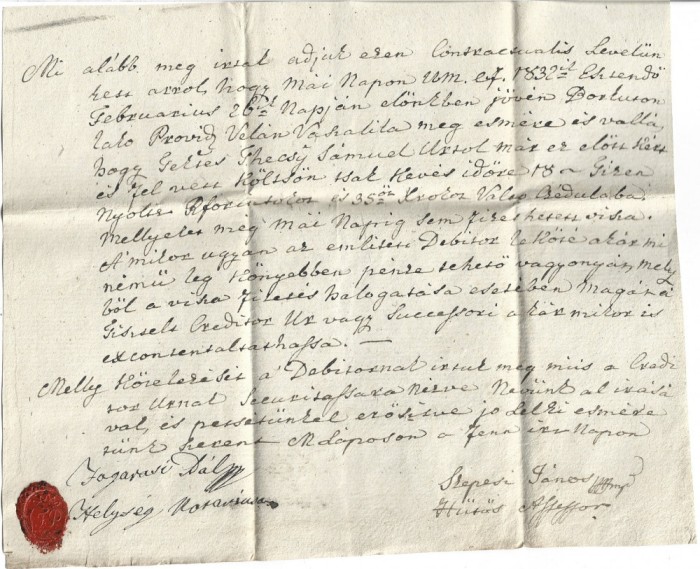 Mi alább meg irtak adjuk ezen Contractualis Levelün
kett arrol, hogy Mái Napon 1832ik Esztendö
Februarius 26ik Napján elönkben jövén
lako Provid Velán Vaszalika meg esmére és vallá,
hogy Tek̃tes Thecsy Sámuel Urtol már ez elött kért
és fel vett költsön tsak kevés időre 18 a Tizen
Nyoltz Rforintokot és 35öt Xrokot Valex Csedulába;
Mellyeket még Mái Napig sem fizethetett visza.
A mikor ugyan az emlitett Debitor leköté akár mi
némü leg könyebben pénze tehető vagyonyán, mely
ből a visza fizetés halogatása esetében magát a
Tisztelt Creditor Ur vagy Successori akár mikor is
excontentáltathassa. —
Melly Kötelezését a Debitornak irtuk meg mü is a Credi
tor Urnak securitassára nézve Nevünk al irásá
val, és petsétünkel erősitve jo Lelki esmére
tünk szerent M Láposon a Fenn irt Napon
Fogarasi Pál
Helység Notariussa
Szepesi János mp
Hütös Assessor